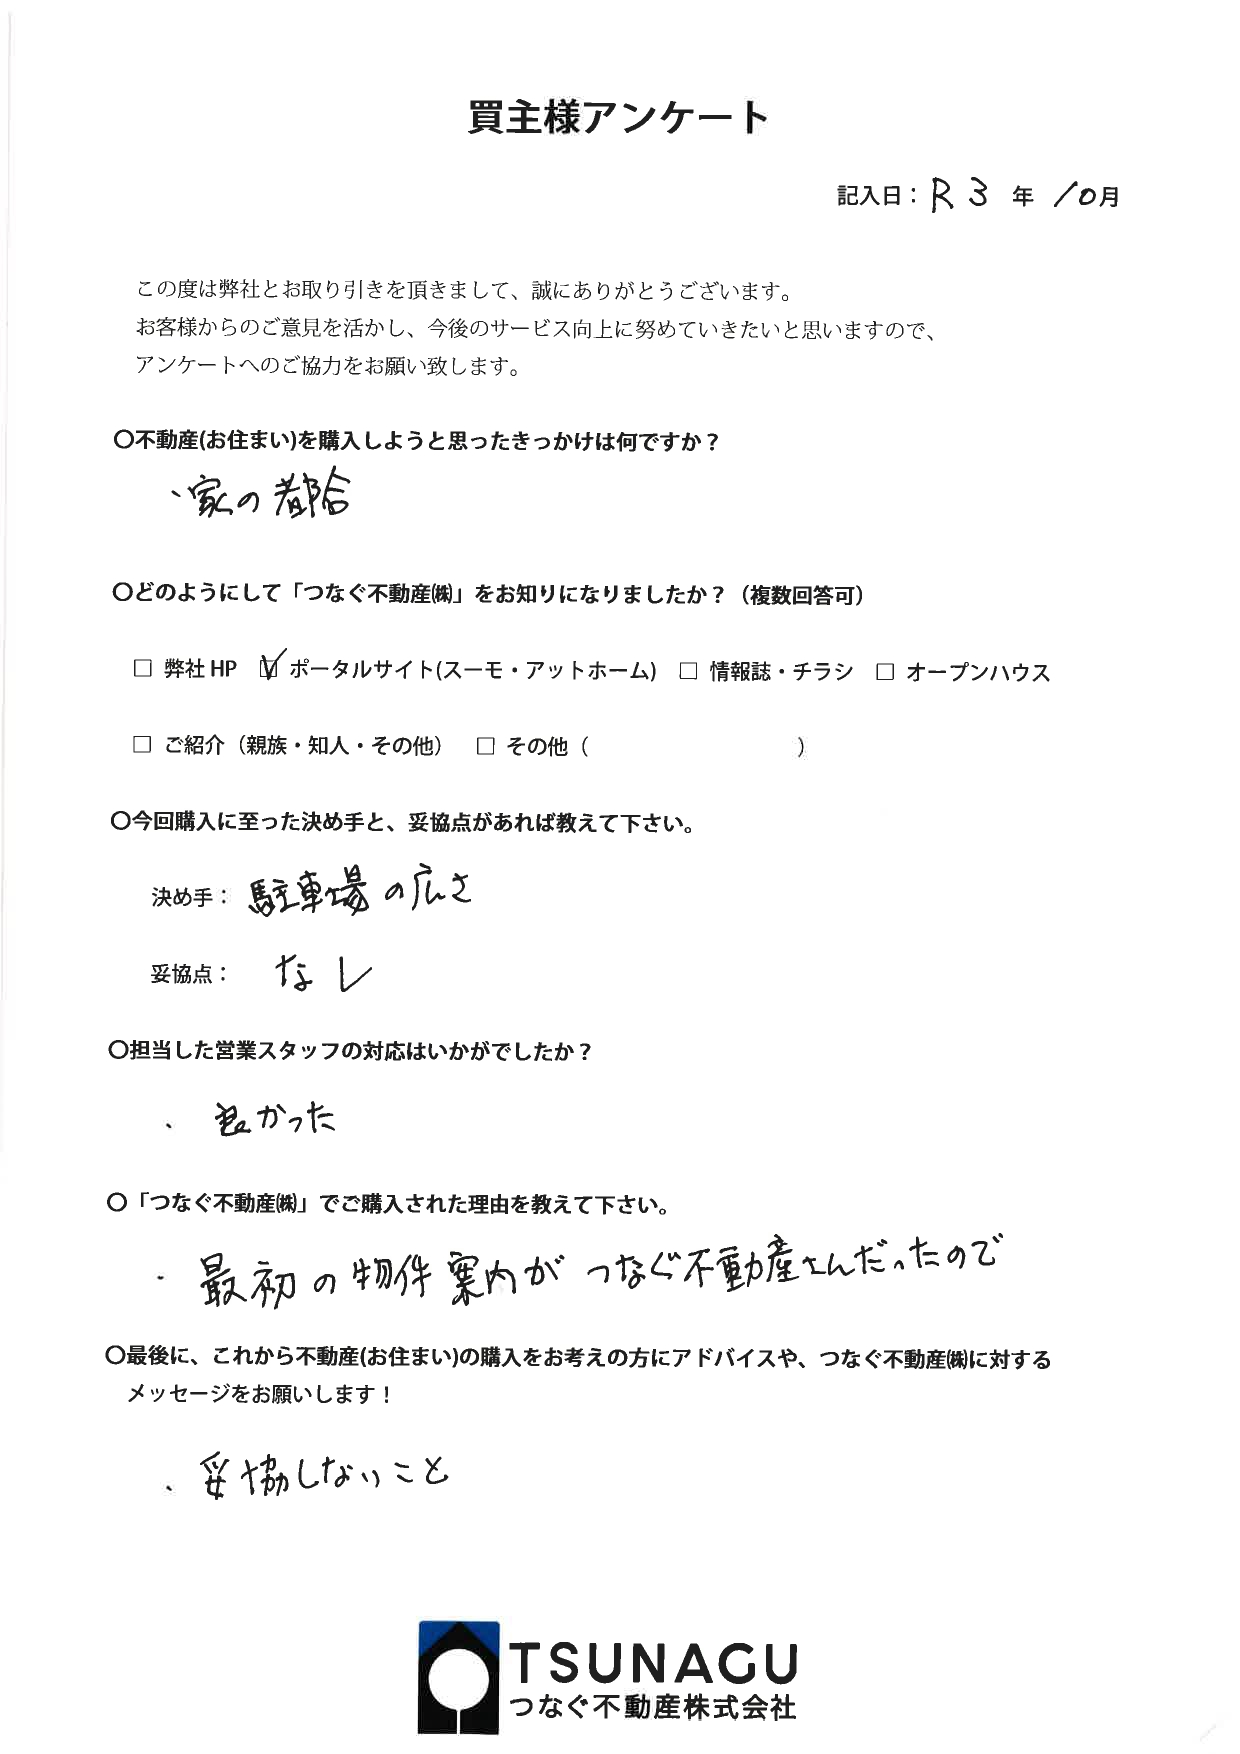 買主様アンケート
記入日：R 3 年 10月
この度は弊社とお取り引きを頂きまして、誠にありがとうございます。
お客様からのご意見を活かし、今後のサービス向上に努めていきたいと思いますので、
アンケートへのご協力をお願い致します。
〇不動産(お住まい)を購入しようと思ったきっかけは何ですか？
・家の都合
〇どのようにして「つなぐ不動産㈱」をお知りになりましたか？（複数回答可）
□ 弊社 HP ☑ ポータルサイト(スーモ・アットホーム) □ 情報誌・チラシ □ オープンハウス
□ ご紹介（親族・知人・その他） □ その他（ ）
〇今回購入に至った決め手と、妥協点があれば教えて下さい。
決め手： 駐車場の広さ
妥協点： なし
〇担当した営業スタッフの対応はいかがでしたか？
・ 良かった
〇「つなぐ不動産㈱」でご購入された理由を教えて下さい。
・ 最初の物件案内がつなぐ不動産さんだったので
〇最後に、これから不動産(お住まい)の購入をお考えの方にアドバイスや、つなぐ不動産㈱に対する
メッセージをお願いします！
・ 妥協しないこと
TSUNAGU
つなぐ不動産株式会社